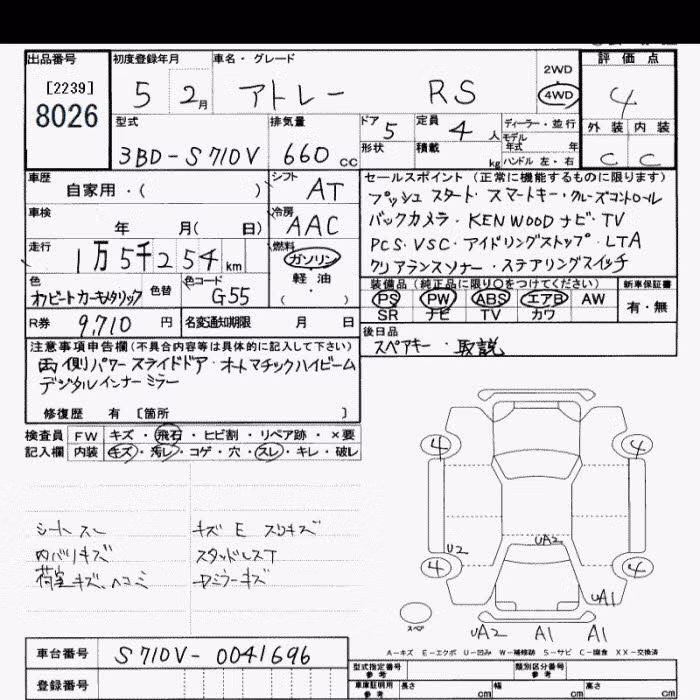 出品番号 初度登録年月 車名・グレード 評価点
[2239] 8026 5 2月 アトレー RS 2WD 4WD 4
型式 排気量 ドア 5 定員 4人 ディーラー・並行 外装 内装
3BD-S710V 660cc 形状 積載 kg モデル年式 年 ハンドル 左・右 C C
車歴 自家用・( ) シフト AT
セールスポイント(正常に機能するものに限ります)
プッシュスタート・スマートキー・クルーズコントロール
車検 年 月( 日) 冷房 AAC
バックカメラ・KENWOODナビ・TV
走行 1万5千254km 燃料 ガソリン・軽油・( )
PCS・VSC・アイドリングストップ・LTA
クリアランスソナー・ステアリングスイッチ
色 オフビートカーキメタリック 色替 色コード G55
装備品(純正品に限り○をつけてください) 新車保証書
PS PW ABS エアB AW 有・無
SR ナビ TV カワ
R券 9,710円 名変通知期限 月 日
後日品
スペアキー・取説
注意事項申告欄(不具合内容等は具体的に記入して下さい)
両側パワースライドドア・オートマチックハイビーム
デジタルインナーミラー
修復歴 有 [箇所 ]
検査員 FW キズ・飛石・ヒビ割・リペア跡・×要
記入欄 内装 キズ・汚レ・コゲ・穴・スレ・キレ・破レ
4 4
シートスレ キズ E スリキズ
内バリキズ スタッドレスT
荷室キズ、ヘコミ
U2 UA2
4 4
UA1
スペア
UA2 A1 A1
A-キズ E-エクボ U-凹み W-補修跡 S-サビ C-腐食 XX-交換済
車台番号 S710V-0041696
型式指定番号 参考 類別区分番号 参考
登録番号 車庫証明用 参考 長さ cm 幅 cm 高さ cm